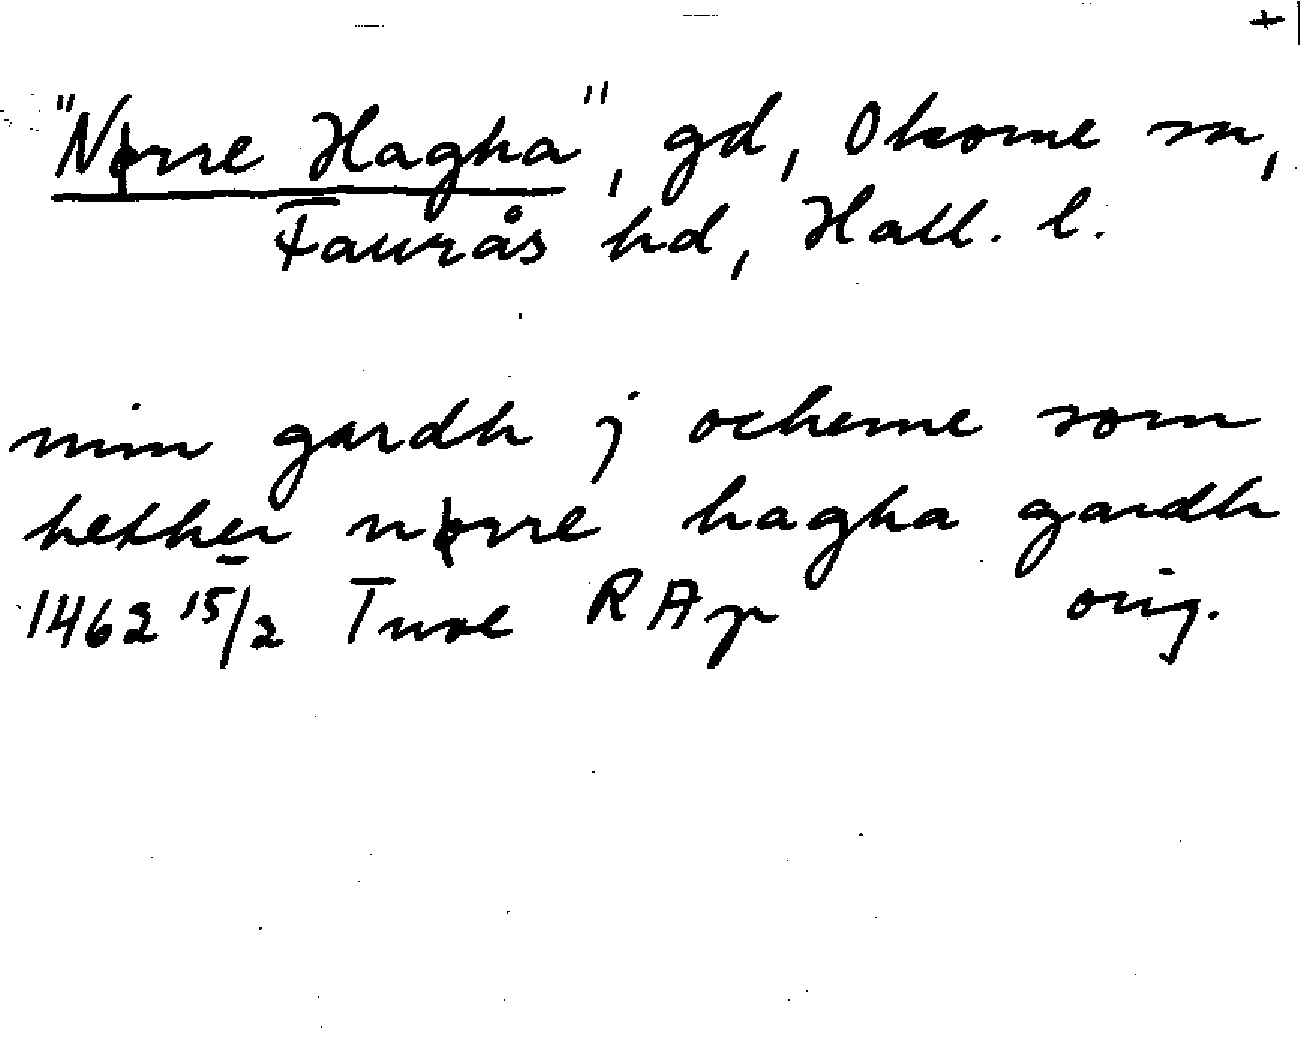 +
"Nørre Hagha", gd, Okome sn,
Faurås hd, Hall. l.
min gardh j ocheme som
hether nørre hagha gardh
1462 15/2 Tuve RAp orig.